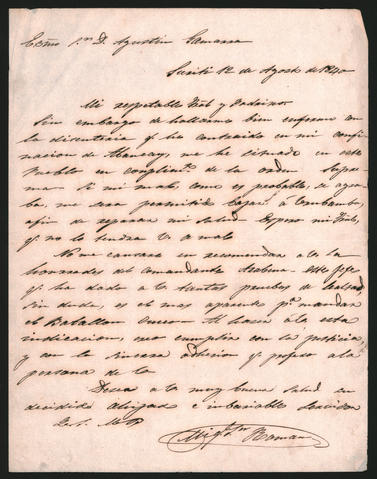 Exmo Sr. D. Agustin Gamarra
12 de Agosto de 1840
Mi respetable Gral y Padrino
Sin embargo de hallarme bien enfermo con
la disenteria q. he contraido en mi confi-
nacion de Abancay, me he situado en este
Pueblo en cumplimto. de la orden Supre-
ma. Si mi mal, como es probable, se agra-
ba, me sera permitido bajar á
afin de reparar mi salud. Espero mi Gral,
q. no lo tendra V. a malo
No me cansaré en recomendar a V. la
honrades del comandante este Jefe
q. ha dado a V. tantas pruebas de lealtad,
sin duda, es el mas aparente pa. mandar
el Batallon Al hacer á V. esta
indicacion, creo cumplir con la justicia,
y con la sincera adhesion q. profeso a la
persona de V.
Desea a V. muy buena salud su
decidido Ahijado e imbariable servidor
Q. B. S. M.
Migl. Sn. Roman